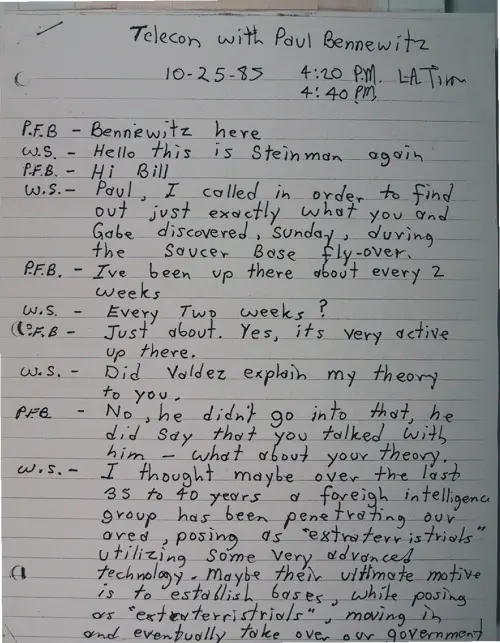 Telecon with Paul Bennewitz
10-25-85 4:20 P.M. LA Time
4:40 P.M.
P.F.B - Bennewitz here
W.S. - Hello this is Steinman again
P.F.B - Hi Bill
W.S. - Paul, I called in order to find
out just exactly what you and
Gabe discovered, Sunday, during
the Saucer Base fly-over.
P.F.B. - Ive been up there about every 2
weeks
W.S. - Every Two weeks?
P.F.B - Just about. Yes, its very active
up there.
W.S. - Did Valdez explain my theory
to you.
PFB - No, he didn't go into that, he
did say that you talked with
him - what about your theory.
W.S. - I thought maybe over the last
35 to 40 years a foreigh intelligence
group has been penetrating our
area, posing as "extraterristrials"
utilizing some very advanced
technology. Maybe their ultimate motive
is to establish bases, while posing
as "extraterristrials", moving in
and eventually take over our government